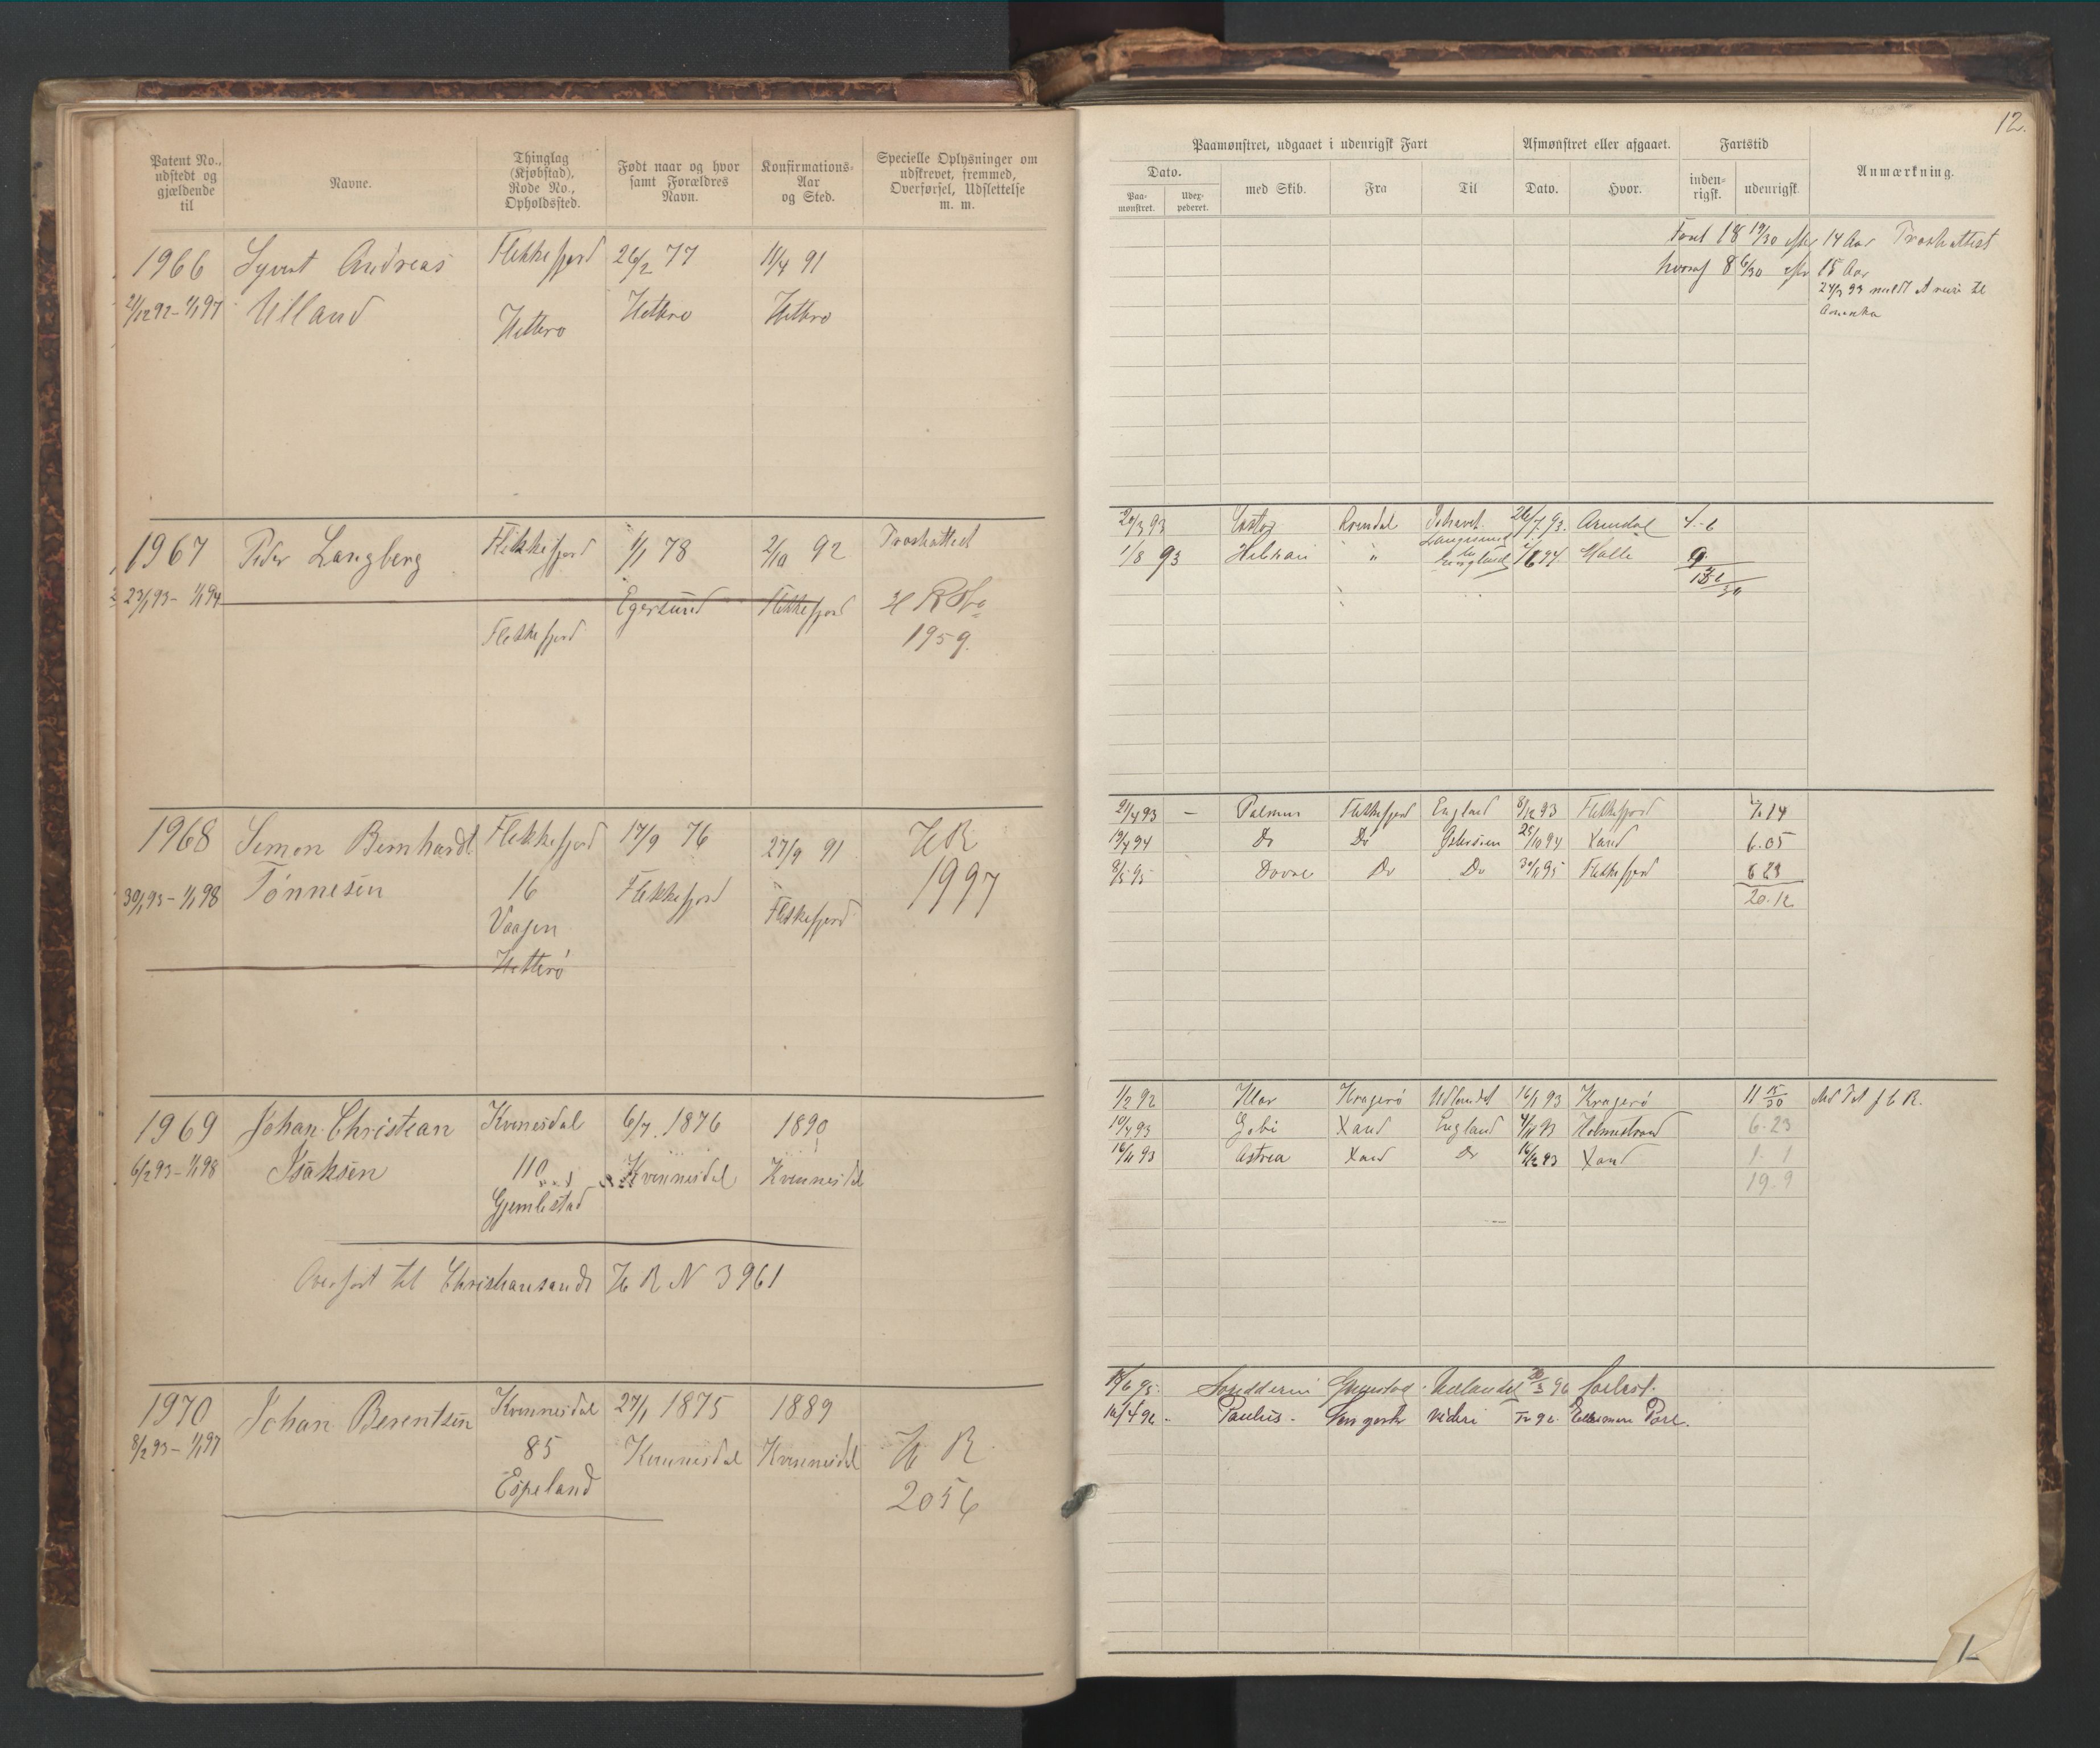 12.
Patent No., udstedt og gjældende til
Navne.
Thinglag (Kjøbstad), Rode No., Opholdssted.
Født naar og hvor samt Forældres Navn.
Konfirmations-Aar og Sted.
Specielle Oplysninger om udskrevet, fremmed, Overførsel, Udslettelse m. m.
Paamønstret, udgaaet i udenrigsk Fart
Afmønstret eller afgaaet.
Fartstid
Anmærkning.
Dato.
Paa-mønstret.
Udex-pederet.
med Skib.
Fra
Til
Dato.
Hvor.
inden-rigsk.
udenrigsk.
1966 Syvert Andreas Flekkefjord 26/2 77 11/4 91
21/12 92 - 1/1 97 Ulland Hetterø Hetterø Hetterø
Faret 18 19/30 efter 14 Aar Troskattist
hvoraf 8 6/30 efter 15 Aar
24/3 93 meldt at reise til
Amerika
1967 Peder Langberg Flekkefjord 1/1 78 2/10 92 Troskattist
23/1 93 - 1/1 94 Egersund Flekkefjord
Flekkefjord 1959.
20/3 93 Arendal 26/7 93. Arendal 4.-6
1/8 93 " England 94. 9
1968 Simon Bernhardt Flekkefjord 17/9 76 27/9 91 H R
30/1 93 - 1/1 98 Tønnesen 16 Flekkefjord Flekkefjord 1997
Vaagen
Hetterø
21/4 93 - Palmer Flekkefjord England 8/12 93 Flekkefjord 7.14
19/4 94 Do Do Østersøen 25/10 94 Xand 6.05
8/5 95 Dovre Do Do 30/11 95 Flekkefjord 6 23
20.12
1969 Johan Christian Kvinesdal 6/7. 1876 1890
6/2 93 - 1/1 98 Isaksen 110 Kvinnesdal Kvinnesdal
Gjemlestad
Overført til Christiansands H R N 3961
1/2 92 Klar Kragerø Udlandet 16/1 93 Kragerø 11 15/30
10/4 93 Gobi Xand England 4/11 93 Holmestrand 6.23
16/11 93 Astrea Xand Do 16/12 93 Xand 1. 1
19.9
1970 Johan Berentsen Kvinnesdal 27/1 1875 1889
8/2 93 - 1/1 97 85 Kvinnesdal Kvinnesdal H R
Espeland 2056
6 95. Grimstad Udlandet 96
16/4 96. Paulus.
1